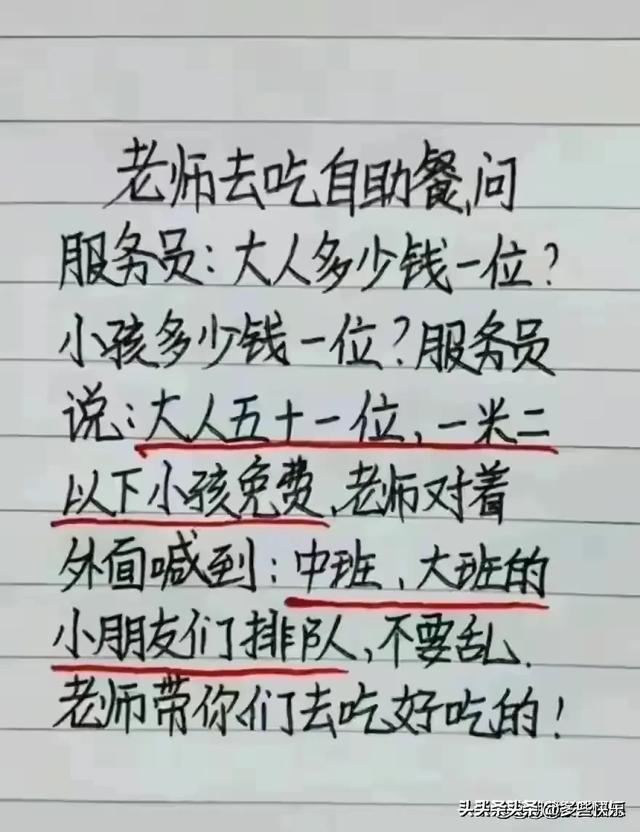 老师去吃自助餐,问
服务员:大人多少钱一位?
小孩多少钱一位?服务员
说:大人五十一位,一米二
以下小孩免费,老师对着
外面喊到:中班、大班的
小朋友们排队,不要乱.
老师带你们去吃好吃的!